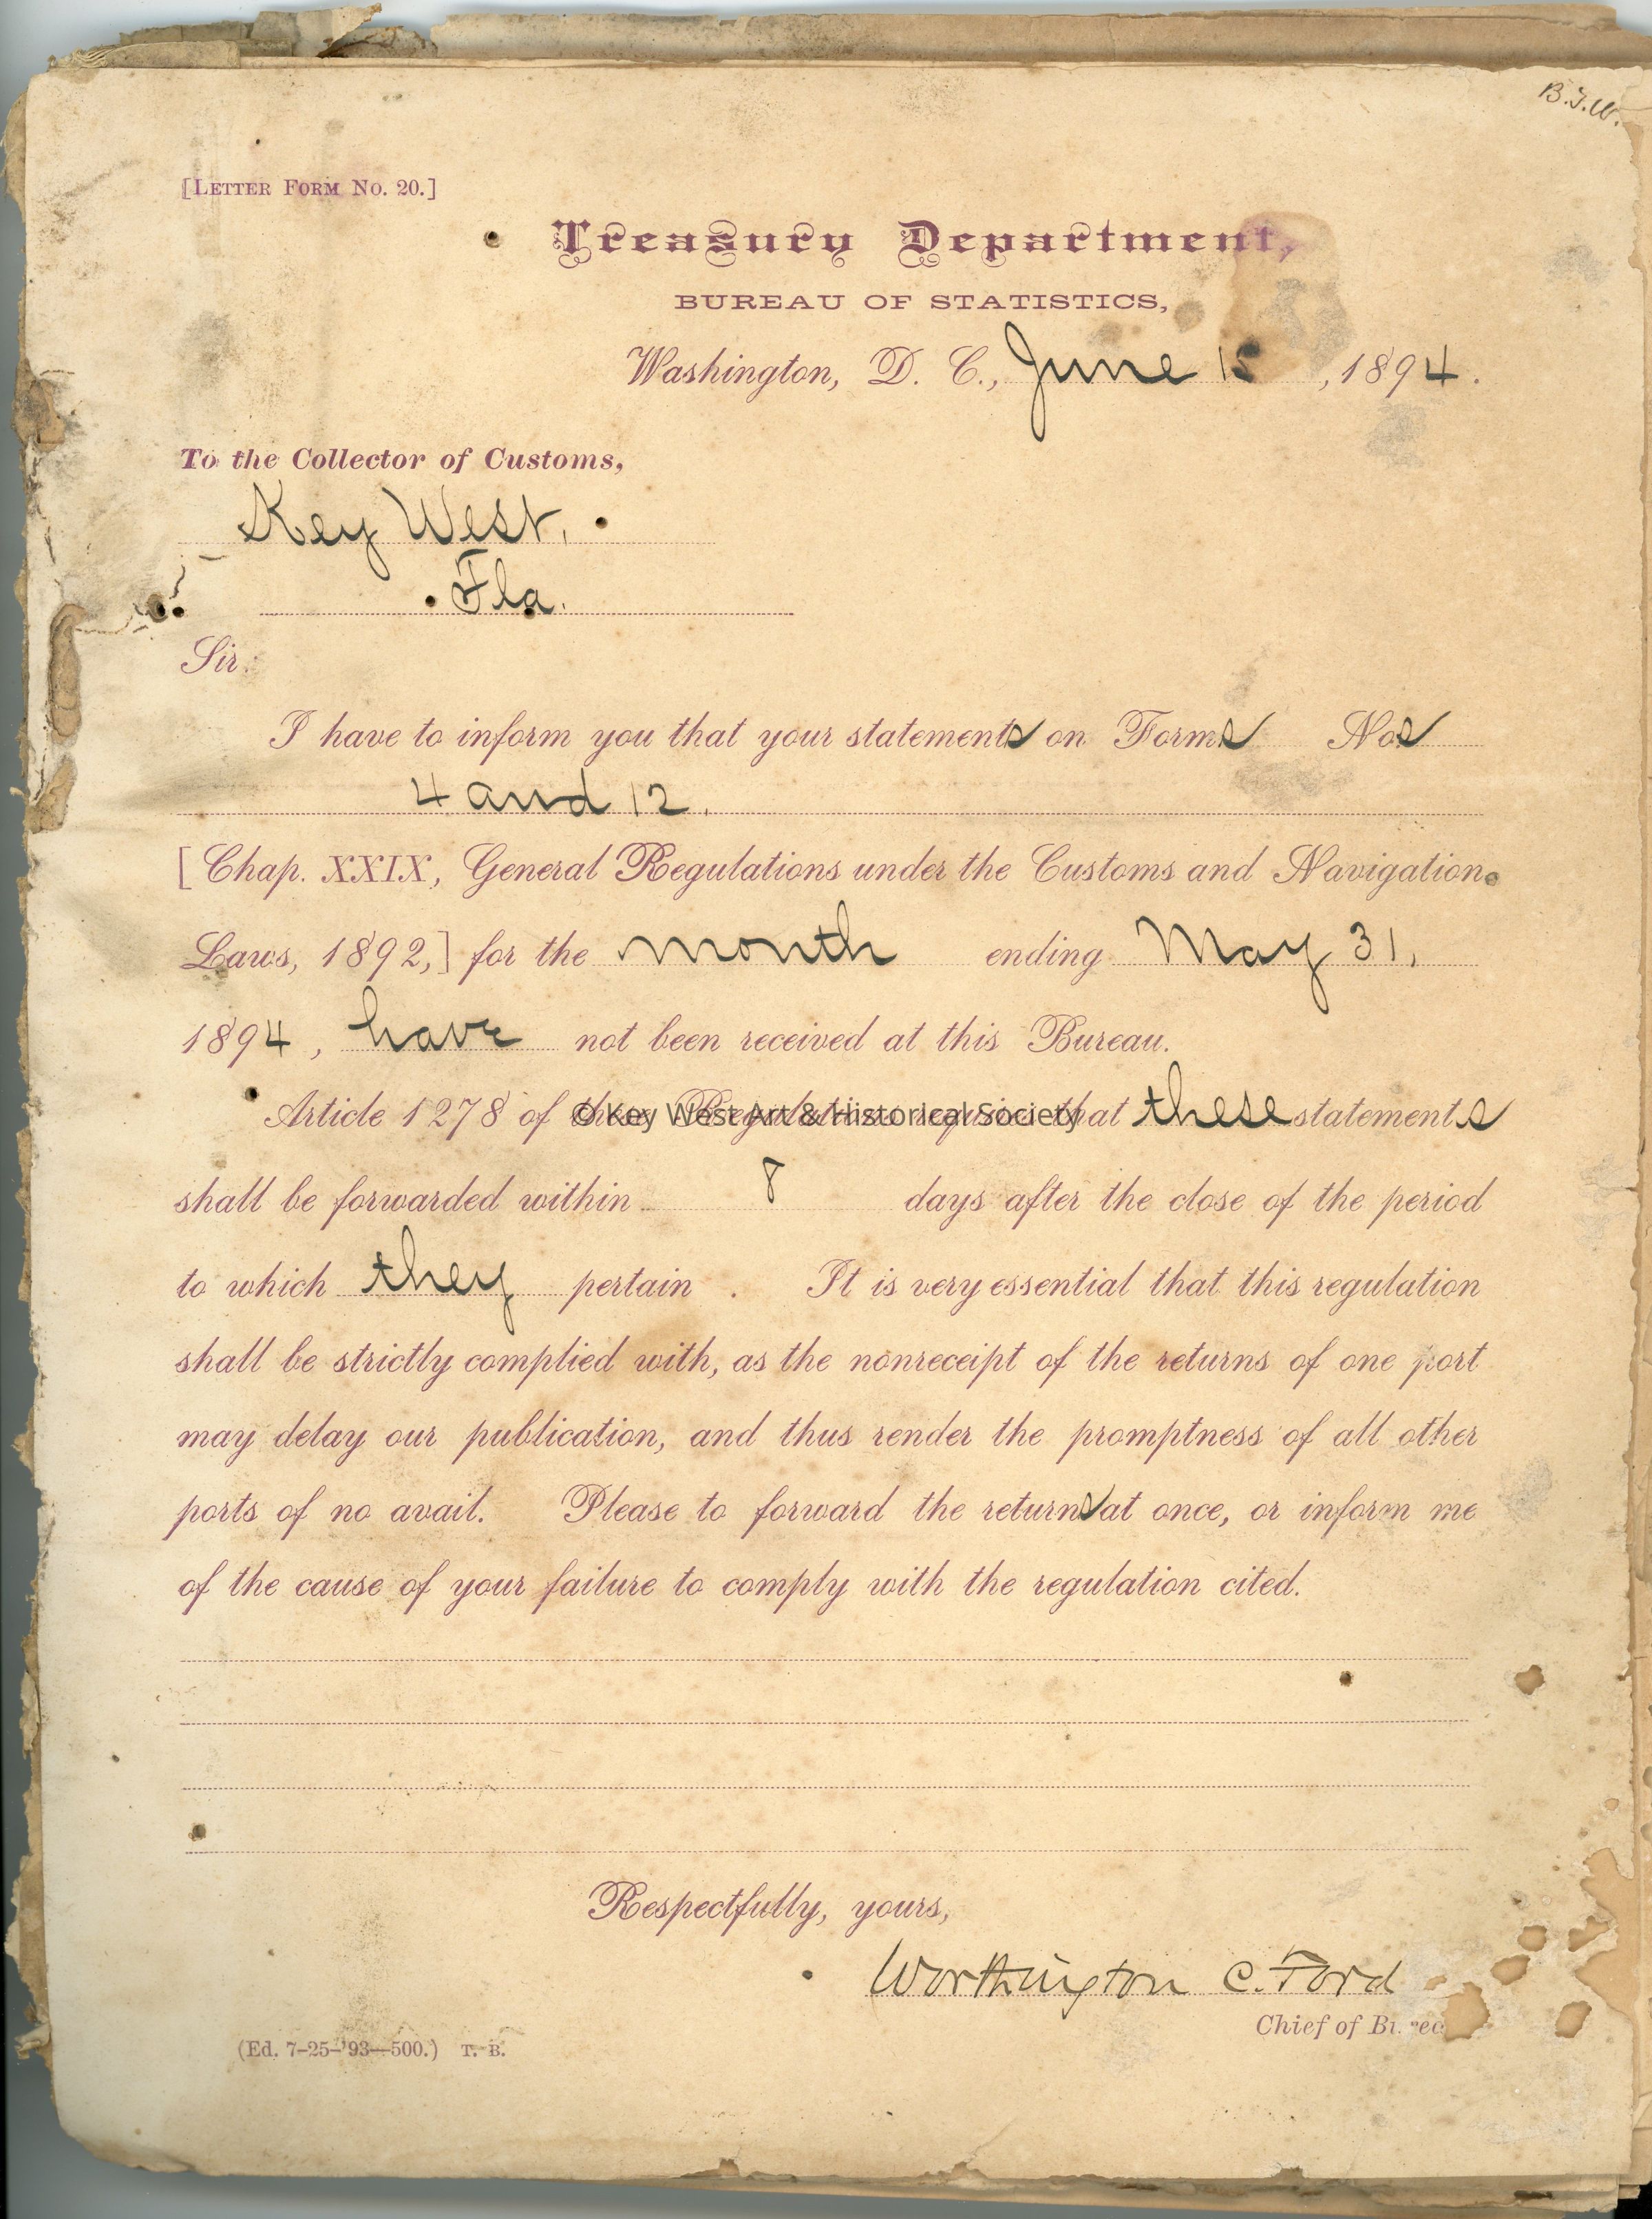 B.F.W.
[LETTER FORM NO. 20.]
Treasury Department,
BUREAU OF STATISTICS,
Washington, D. C., June 15, 1894.
To the Collector of Customs,
Key West,
Fla.
Sir:
I have to inform you that your statements on Forms Nos
4 and 12.
[Chap. XXIX, General Regulations under the Customs and Navigation
Laws, 1892,] for the month ending May 31,
1894, have not been received at this Bureau.
Article 1278 of these Regulations requires that these statements
© Key West Art & Historical Society
shall be forwarded within 8 days after the close of the period
to which they pertain. It is very essential that this regulation
shall be strictly complied with, as the nonreceipt of the returns of one port
may delay our publication, and thus render the promptness of all other
ports of no avail. Please to forward the returns at once, or inform me
of the cause of your failure to comply with the regulation cited.
Respectfully, yours,
Worthington C. Ford
Chief of Bureau
(Ed. 7-25-'93—500.) T. B.